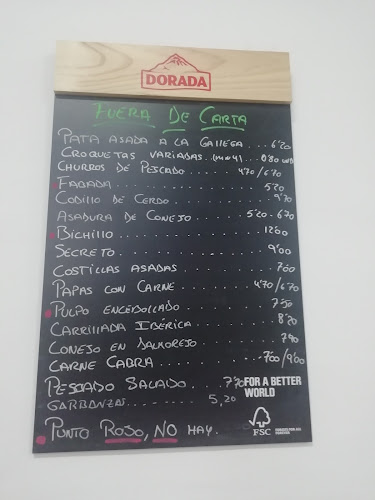 DORADA
FUERA DE CARTA
PATA ASADA A LA GALLEGA... 6'20
CROQUETAS VARIADAS (min 4).. 0'80 UND
CHURROS DE PESCADO..... 4'70/6'70
FABADA.......... 5'20
CODILLO DE CERDO.......... 9'70
ASADURA DE CONEJO....... 5'20-6'70
BICHILLO........... 12'00
SECRETO............ 9'00
COSTILLAS ASADAS.......... 7'60
PAPAS CON CARNE....... 4'70/6'70
PULPO ENCEBOLLADO 7'50
CARRILLADA IBÉRICA....... 8'20
CONEJO EN SALMOREJO 7'90
CARNE CABRA......... 7'00/9'00
PESCADO SALADO.... 7'70
GARBANZAS......... 5,20
FOR A BETTER
WORLD
PUNTO ROJO, NO HAY.
FSC